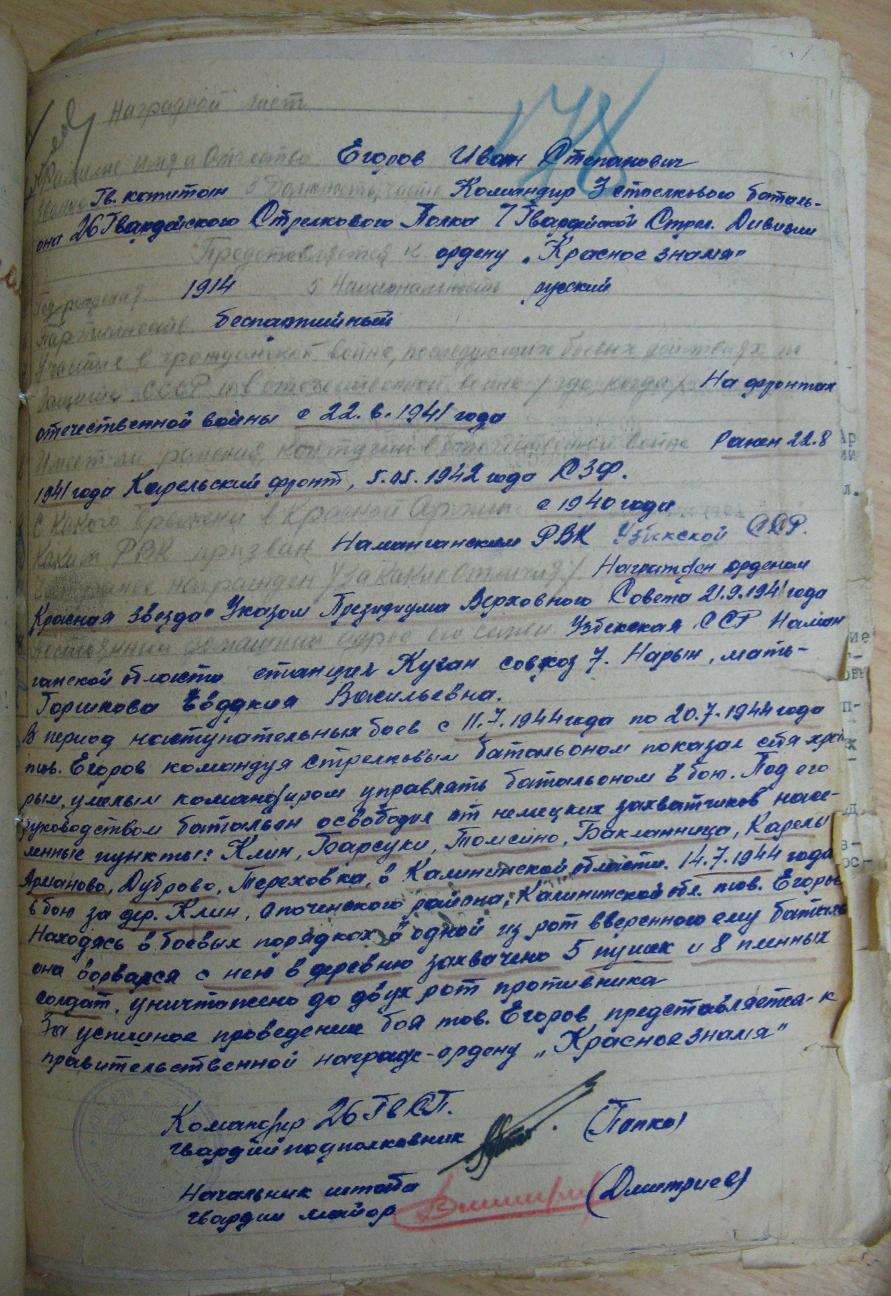 Наградной лист
178
Фамилие имя и Отчество Егоров Иван Степанович
Звание Гв. капитан 3 Должность, часть Командир 3 стрелкового баталь-
она 26 Гвардейского Стрелкового Полка 7 Гвардейской Стрел. Дивизии
Представляется к ордену „Красное знамя"
Год рождения 1914 5 Национальность русский
Партийность беспартийный
Участие в гражданской войне, последующих боевых действиях по
защите СССР и в отечественной войне /где, когда/ На фронтах
отечественной войны с 22.6.1941 года
Имеет ли ранения, контузии в отечественной войне Ранен 22.8
1941 года Карельский фронт, 5.05.1942 года ЮЗФ.
С какого времени в Красной Армии с 1940 года
Каким РВК призван Наманганским РВК Узбекской ССР.
Чем ранее награжден /за какие отличия/ Награжден орденом
Красная звезда" Указом Президиума Верховного Совета 21.9.1941 года
Постоянный домашний адрес его семьи Узбекская ССР Наман
ганской области станция Куган совхоз 7. Нарын, мать-
Горшкова Евдокия Васильевна.
В период наступательных боев с 11.7.1944 года по 20.7.1944 года
тов. Егоров командуя стрелковым батальоном показал себя храб
рым, умелым командиром управлять батальоном в бою. Под его
руководством батальон освободил от немецких захватчиков насе-
ленные пункты: Клин, Барсуки, Томсино, Бакланница, Карелы
Арманово, Дуброво, Тереховка, в Калининской области. 14.7.1944 года
в бою за дер. Клин, Опоченского района, Калининской обл. тов. Егоров
Находясь в боевых порядках в одной из рот вверенного ему баталь
она ворвался с нею в деревню захвачено 5 пушек и 8 пленных
солдат, уничтожено до двух рот противника
За успешное проведение боя тов. Егоров представляется к
правительственной награде-ордену „Красное знамя"
Командир 26 ГвСП.
гвардии подполковник (Папко)
Начальник штаба
гвардии майор (Дмитриев)